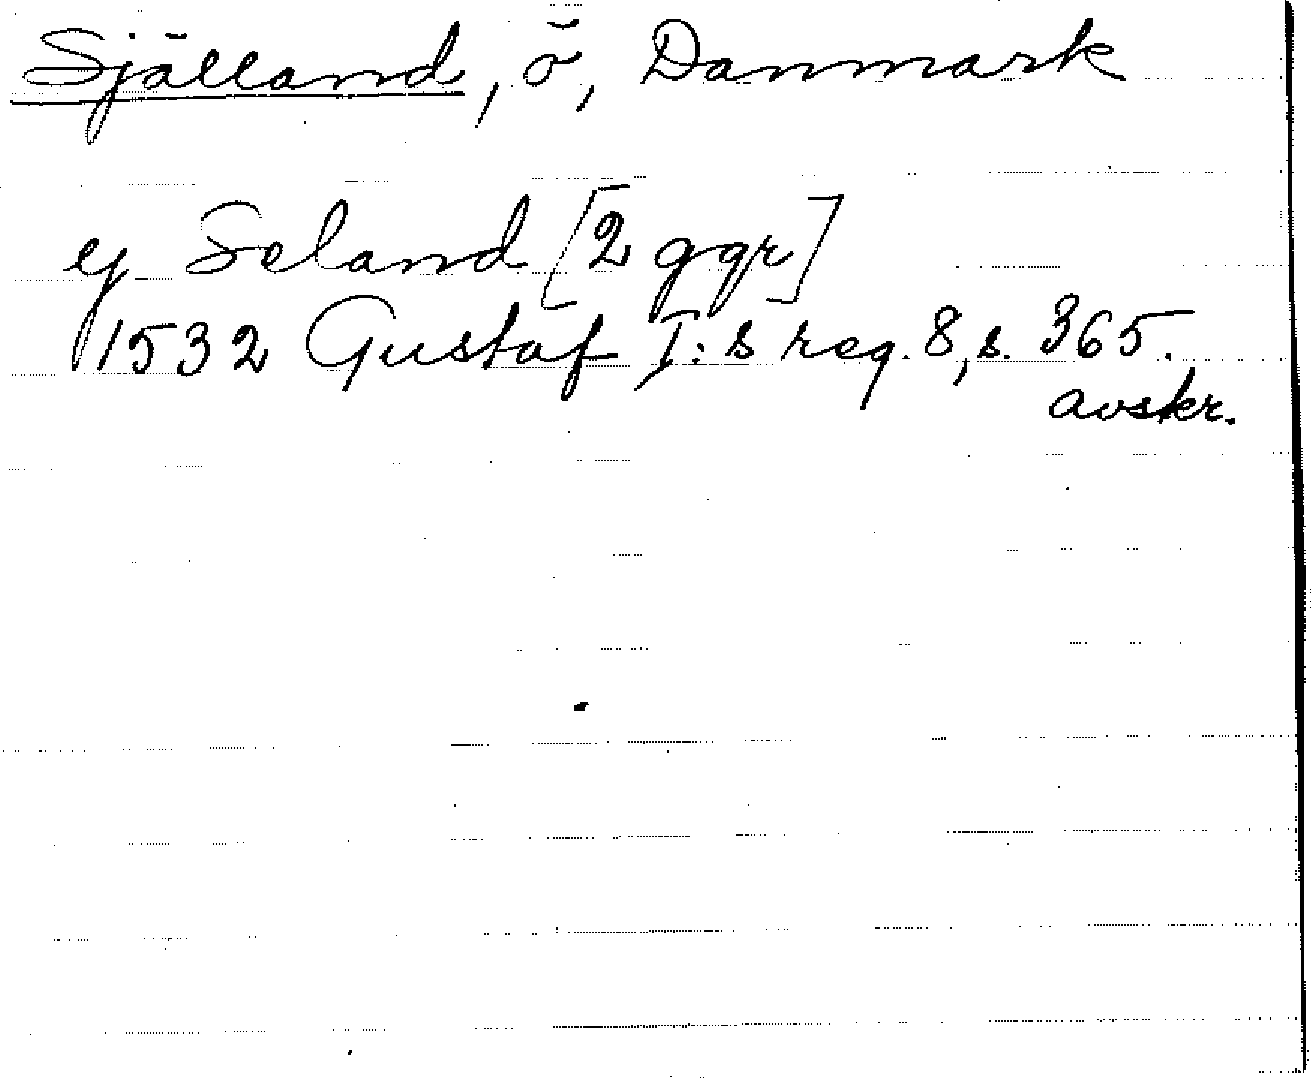 Själland, ö, Danmark
ij Seland [2 ggr]
1532 Gustaf I:s reg. 8, s. 365.
avskr.